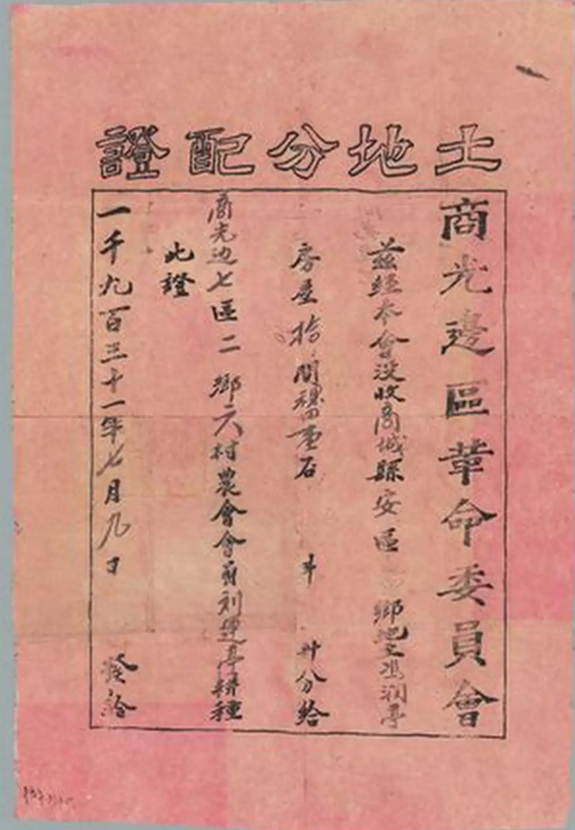 土地分配證
商光邊區革命委員會
茲經本會沒收商城縣安區 鄉地主馮潤亭
房屋拾間課田壹石 斗 升分給
商光边七區二鄉六村農會會員刘運亭耕種
此證
一千九百三十一年七月九日 發給